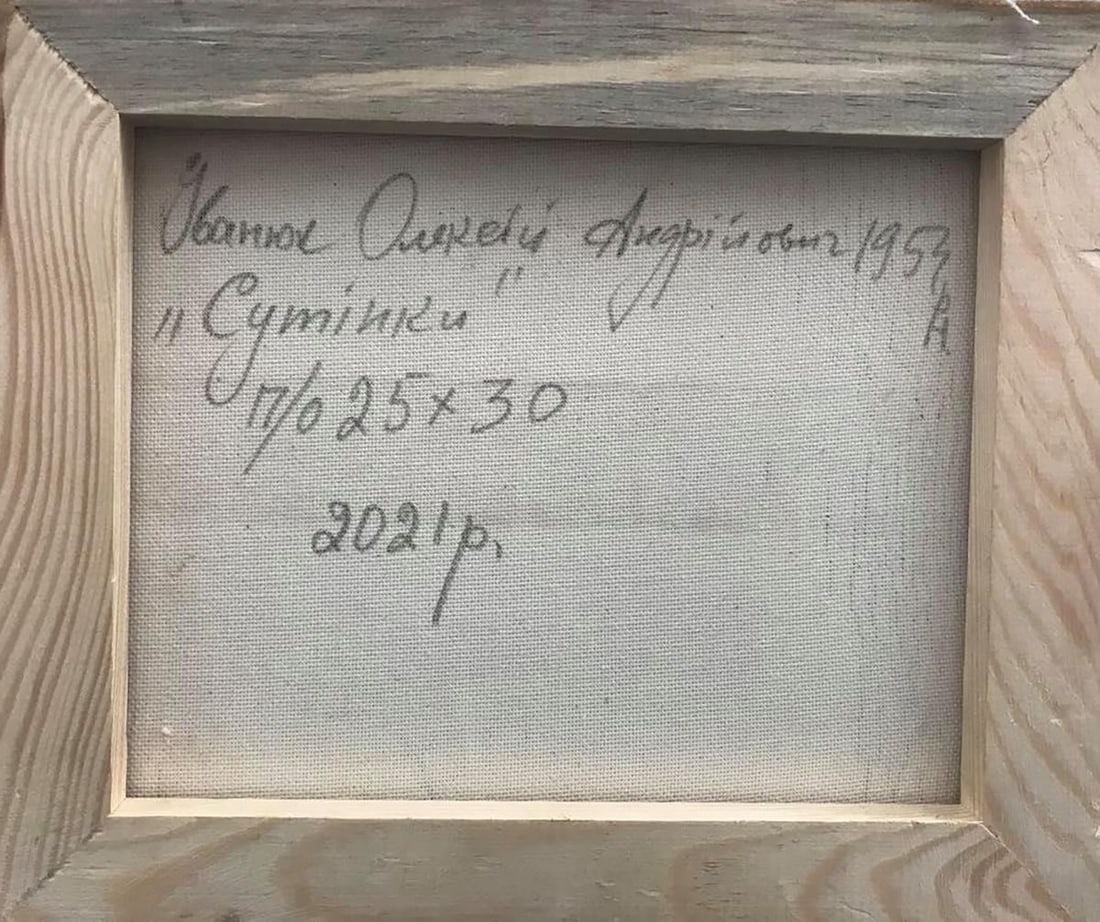 Іванюк Олексій Андрійович 1953
р.н.
„Сутінки"
п/о 25×30
2021р.